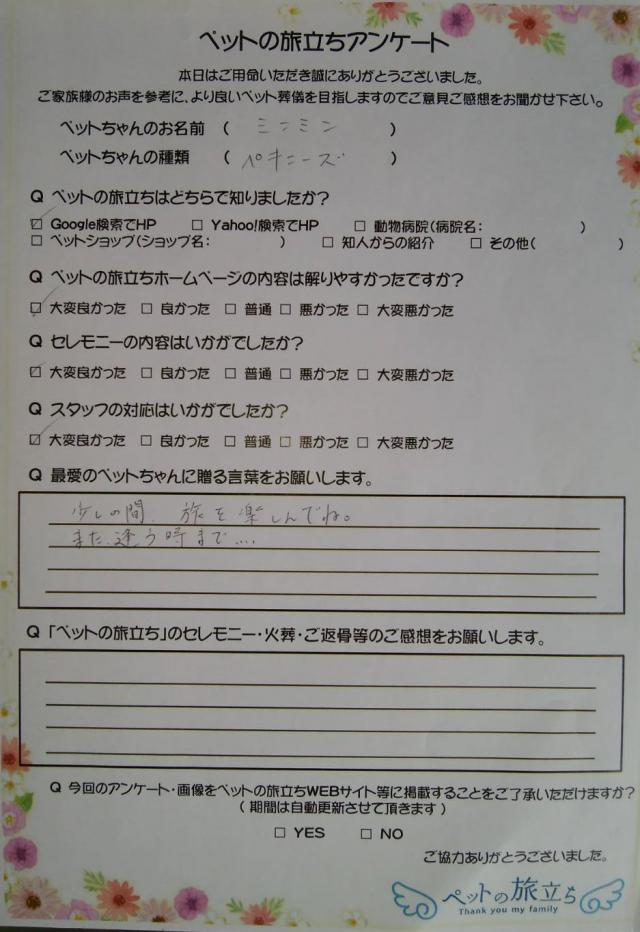 ペットの旅立ちアンケート
本日はご用命いただき誠にありがとうございました。
ご家族様のお声を参考に、より良いペット葬儀を目指しますのでご意見ご感想をお聞かせ下さい。
ペットちゃんのお名前 ( ミンミン )
ペットちゃんの種類 ( ペキニーズ )
Q ペットの旅立ちはどちらで知りましたか?
☑ Google検索でHP □ Yahoo!検索でHP □ 動物病院(病院名: )
□ ペットショップ(ショップ名: ) □ 知人からの紹介 □ その他( )
Q ペットの旅立ちホームページの内容は解りやすかったですか?
☑ 大変良かった □ 良かった □ 普通 □ 悪かった □ 大変悪かった
Q セレモニーの内容はいかがでしたか?
☑ 大変良かった □ 良かった □ 普通 □ 悪かった □ 大変悪かった
Q スタッフの対応はいかがでしたか?
☑ 大変良かった □ 良かった □ 普通 □ 悪かった □ 大変悪かった
Q 最愛のペットちゃんに贈る言葉をお願いします。
少しの間、旅を楽しんでね。
また、逢う時まで....
Q 「ペットの旅立ち」のセレモニー・火葬・ご返骨等のご感想をお願いします。
Q 今回のアンケート・画像をペットの旅立ちWEBサイト等に掲載することをご了承いただけますか?
( 期間は自動更新させて頂きます )
□ YES □ NO
ご協力ありがとうございました。
ペットの旅立ち
Thank you my family